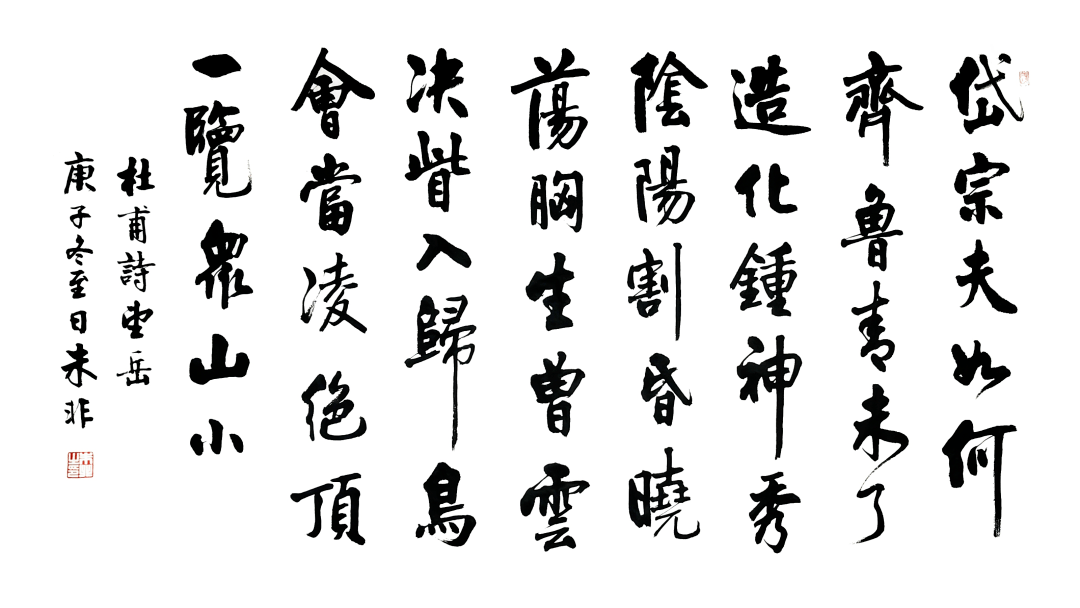 岱宗夫如何
齊魯青未了
造化鍾神秀
陰陽割昏曉
蕩胸生曽雲
決眥入歸鳥
會當凌絕頂
一覽衆山小
杜甫詩望岳
庚子冬至日未非